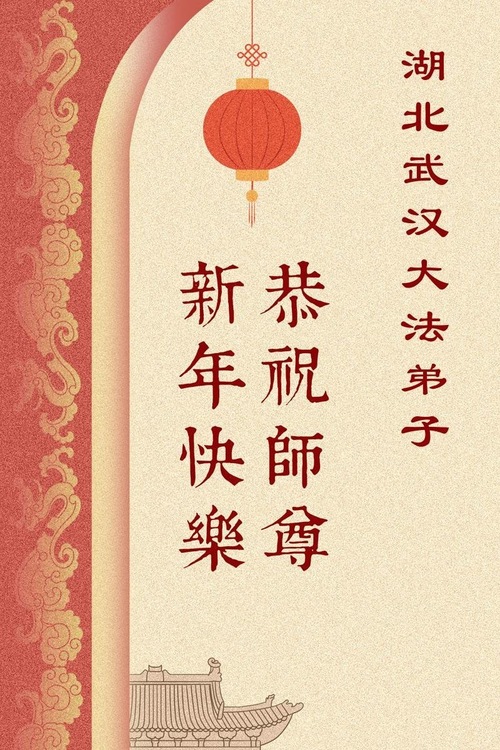 湖北武汉大法弟子
恭祝師尊
新年快樂